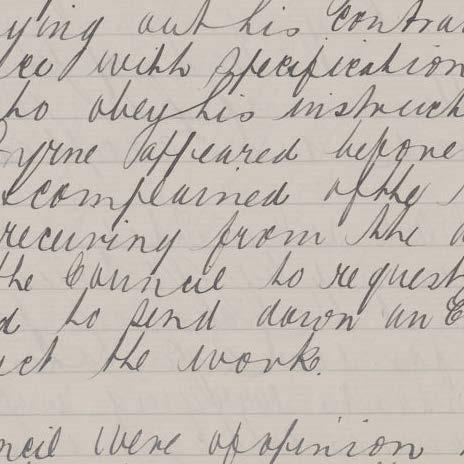 ying out his Contra
ce with specification
to obey his instruct
Byrne appeared before
complained of the
receiving from the
the Council to request
d to send down an E
uct the work.
ncil were of opinion